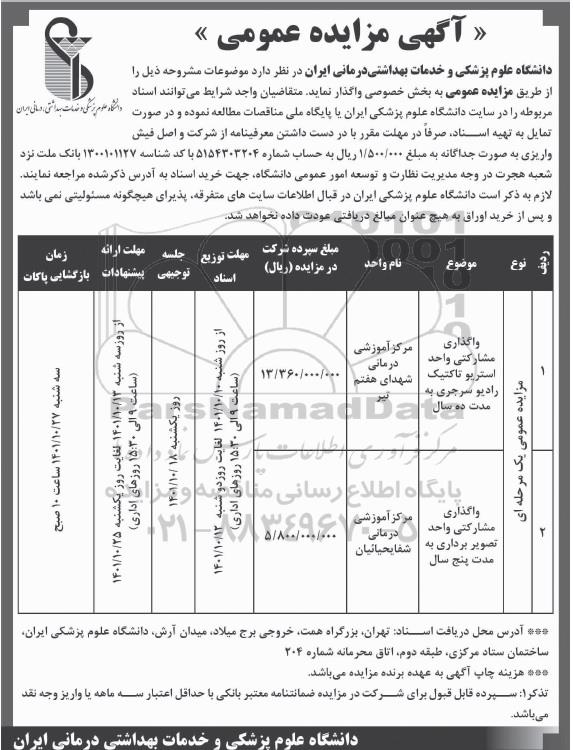 « آگهی مزایده عمومی »
دانشگاه علوم پزشکی و خدمات بهداشتی، درمانی ایران
دانشگاه علوم پزشکی و خدمات بهداشتی‌درمانی ایران در نظر دارد موضوعات مشروحه ذیل را
از طریق مزایده عمومی به بخش خصوصی واگذار نماید. متقاضیان واجد شرایط می‌توانند اسناد
مربوطه را در سایت دانشگاه علوم پزشکی ایران یا پایگاه ملی مناقصات مطالعه نموده و در صورت
تمایل به تهیه اسناد، صرفاً در مهلت مقرر با در دست داشتن معرفینامه از شرکت و اصل فیش
واریزی به صورت جداگانه به مبلغ ۱/۵۰۰/۰۰۰ ریال به حساب شماره ۵۱۵۴۳۰۳۲۰۴ با کد شناسه ۱۳۰۰۱۰۱۱۲۷ بانک ملت نزد
شعبه هجرت در وجه مدیریت نظارت و توسعه امور عمومی دانشگاه، جهت خرید اسناد به آدرس ذکرشده مراجعه نمایند.
لازم به ذکر است دانشگاه علوم پزشکی ایران در قبال اطلاعات سایت های متفرقه، پذیرای هیچگونه مسئولیتی نمی باشد
و پس از خرید اوراق به هیچ عنوان مبالغ دریافتی عودت داده نخواهد شد.
ردیف
نوع
موضوع
نام واحد
مبلغ سپرده شرکت
در مزایده (ریال)
مهلت توزیع
اسناد
جلسه
توجیهی
مهلت ارائه
پیشنهادات
زمان
بازگشایی پاکات
۱
مزایده عمومی یک مرحله ای
واگذاری
مشارکتی واحد
استریو تاکتیک
رادیو سرجری به
مدت ده سال
مرکز آموزشی
درمانی
شهدای هفتم
تیر
۱۳/۳۶۰/۰۰۰/۰۰۰
از روز شنبه ۱۴۰۱/۱۰/۱۰ لغایت روزدو شنبه ۱۴۰۱/۱۰/۱۲
(ساعت ۹ الی ۱۵:۳۰ روزهای اداری)
روز یکشنبه ۱۴۰۱/۱۰/۱۸
از روز سه شنبه ۱۴۰۱/۱۰/۱۳ لغایت روز یکشنبه ۱۴۰۱/۱۰/۲۵
(ساعت ۹ الی ۱۵:۳۰ روزهای اداری)
سه شنبه ۱۴۰۱/۱۰/۲۷ ساعت ۱۰ صبح
۲
واگذاری
مشارکتی واحد
تصویر برداری به
مدت پنج سال
مرکز آموزشی
درمانی
شفایحیائیان
۵/۸۰۰/۰۰۰/۰۰۰
ParsNamadData
مرکز فرآوری اطلاعات پارس نماد داده ها
پایگاه اطلاع رسانی مناقصه و مزایده
۰۲۱-۸۸۳۴۹۶۷۰-۵
*** آدرس محل دریافت اسناد: تهران، بزرگراه همت، خروجی برج میلاد، میدان آرش، دانشگاه علوم پزشکی ایران،
ساختمان ستاد مرکزی، طبقه دوم، اتاق محرمانه شماره ۲۰۴
*** هزینه چاپ آگهی به عهده برنده مزایده می‌باشد.
تذکر۱: سپرده قابل قبول برای شرکت در مزایده ضمانتنامه معتبر بانکی با حداقل اعتبار سه ماهه یا واریز وجه نقد
می‌باشد.
دانشگاه علوم پزشکی و خدمات بهداشتی درمانی ایران